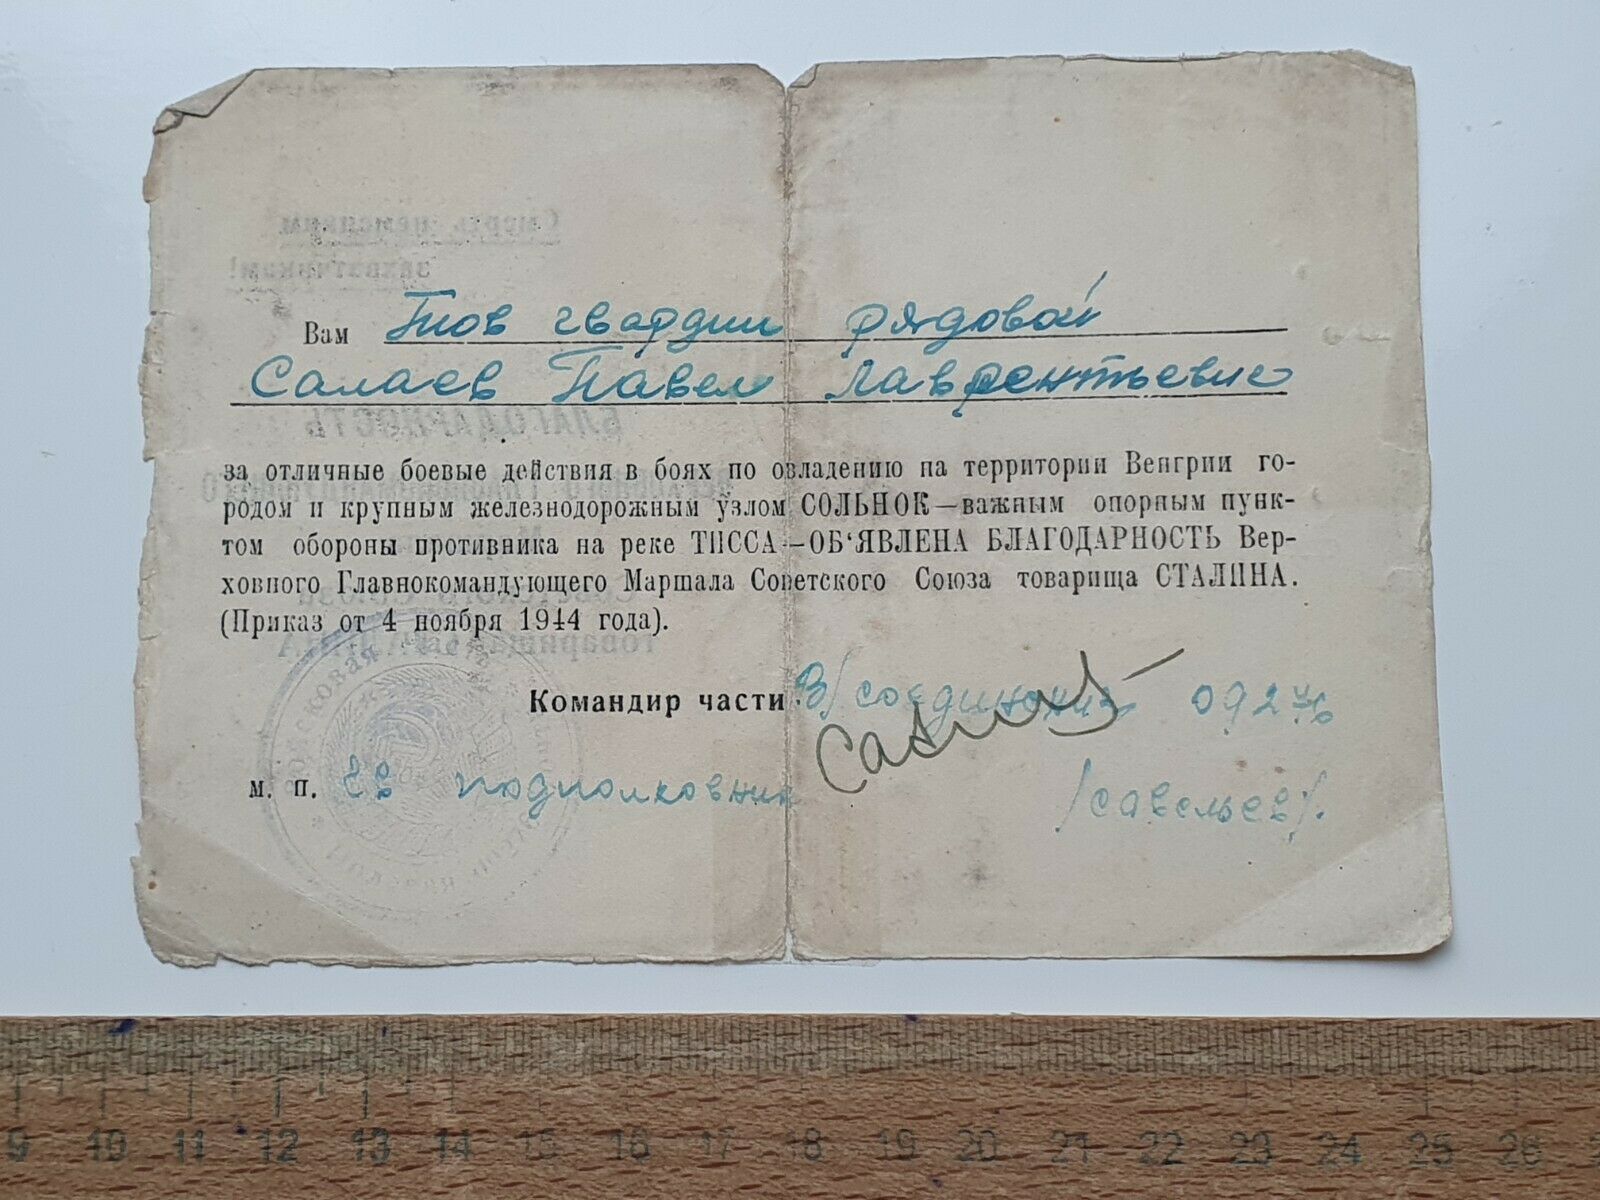 Вам Тов гвардии рядовой
Салаев Павел Лаврентьевич
за отличные боевые действия в боях по овладению на территории Венгрии го-
родом и крупным железнодорожным узлом СОЛЬНОК—важным опорным пунк-
том обороны противника на реке ТИССА—ОБ‘ЯВЛЕНА БЛАГОДАРНОСТЬ Вер-
ховного Главнокомандующего Маршала Советского Союза товарища СТАЛИНА.
(Приказ от 4 ноября 1944 года).
Командир части В/соединения
м. п. гв подполковник
/савельев/.
9 10 11 12 13 14 15 16 17 18 19 20 21 22 23 24 25 26